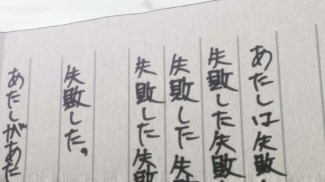 あたしは失敗
失敗した失敗
失敗した失
失敗した失敗
失敗した。
あたしがあた